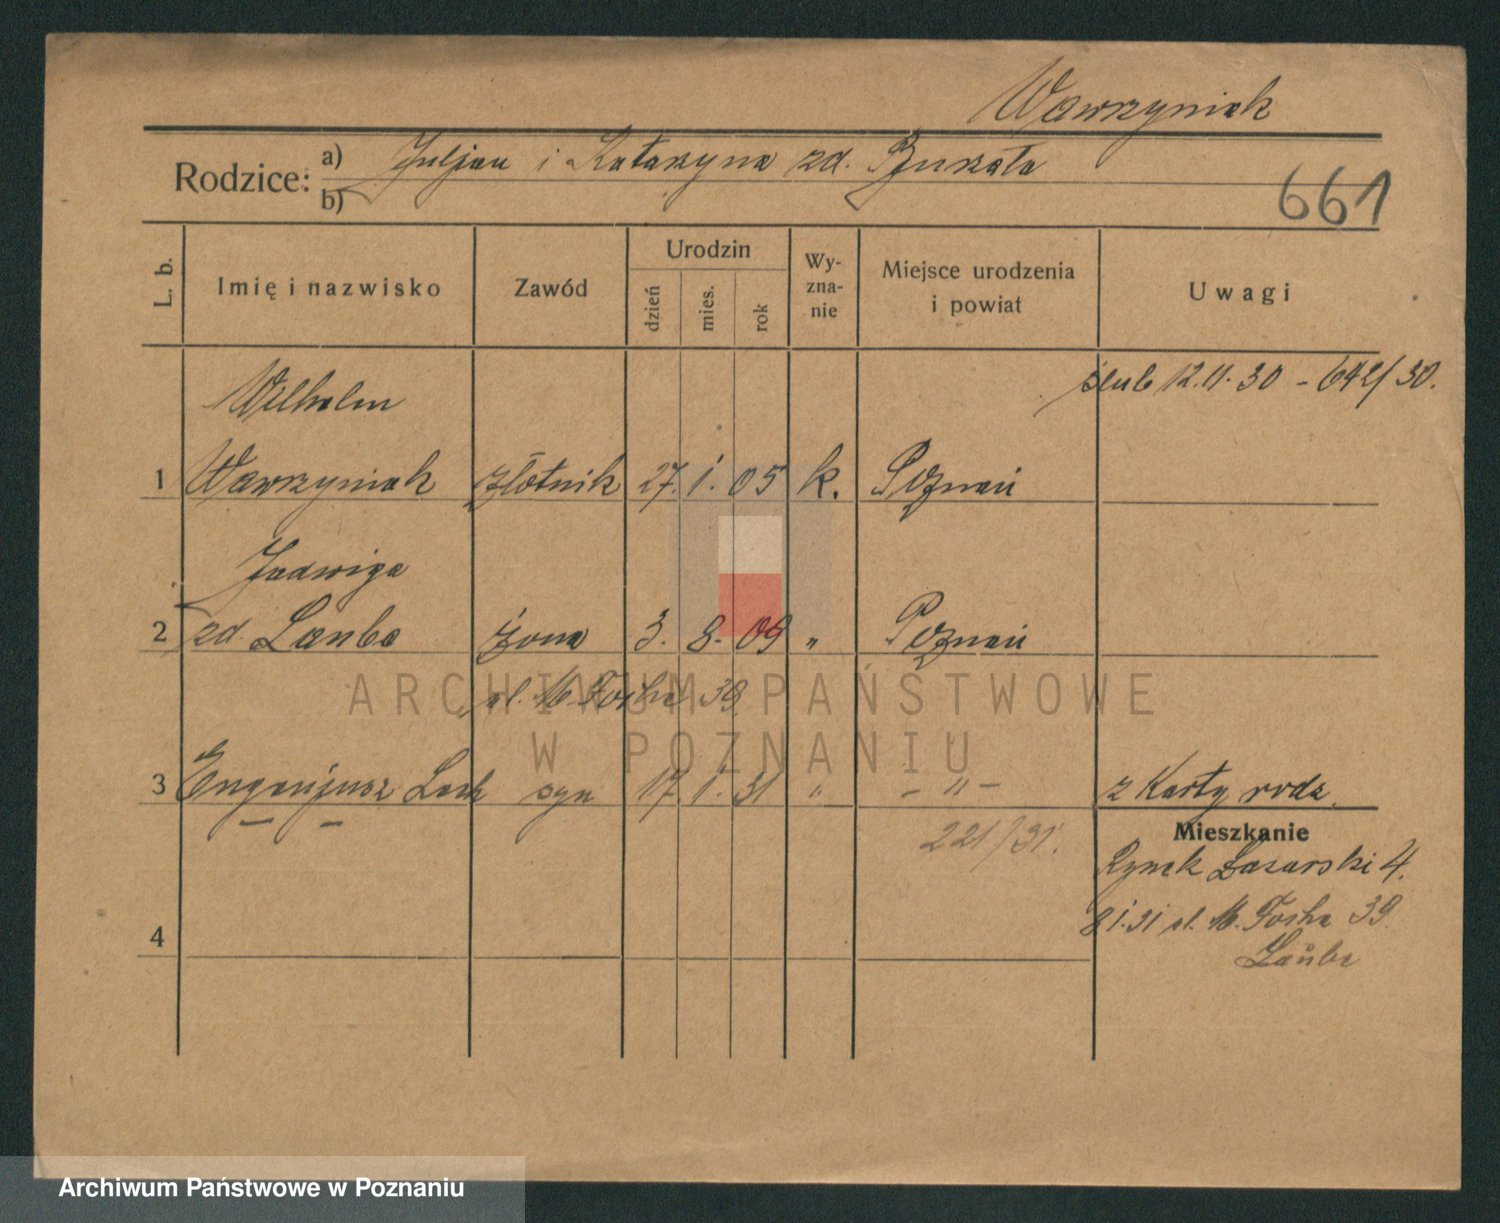 Wawrzyniak
Rodzice: a) Juljan i Katarzyna zd.
b)
661
L. b. Imię i nazwisko Zawód Urodzin dzień mies. rok Wy-zna-nie Miejsce urodzenia i powiat Uwagi
ślub 12.11.30 - 642/30.
Wilhelm
1 Wawrzyniak złotnik 27. 1. 05 k. Poznań
Jadwiga
2 zd. Laube żona 3. 8. 09 " Poznań
ul. M. Focha 39
3 Eugenjusz Lech syn 17. 1. 31 " - " - z Karty rodz.
221/31.
Mieszkanie
Rynek Łazarski 4.
8 1.31 ul. M. Focha 39.
Laube
4
ARCHIWUM PAŃSTWOWE
W POZNANIU
Archiwum Państwowe w Poznaniu